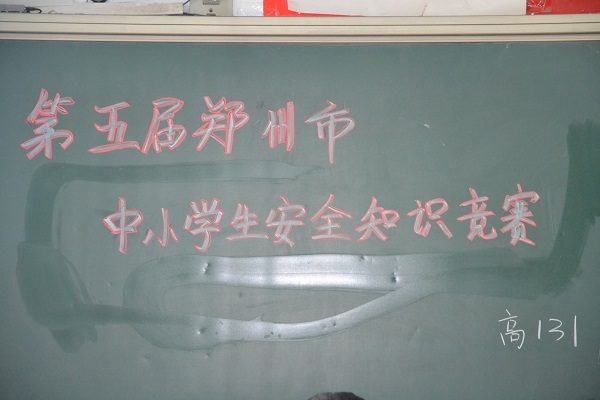 第五届郑州市
中小学生安全知识竞赛
高131